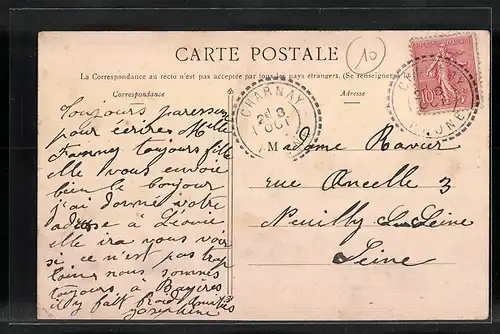 10
CARTE POSTALE
La Correspondance au recto n'est pas acceptée par tous les pays étrangers. (Se renseigner
Correspondance
Adresse
CHARNAY
RHONE
10
Toujours paresseuse
pour écrire Mlle
Fanny toujours
elle vous envoie
bien le bonjour
j'ai donné votre
adresse à Léonie
elle ira vous voir
si ce n'est pas trop
loin nous sommes
toujours à Bayères
il y fait froid amitiés
Josephine
Madame Ravier
rue Ancelle 3
Neuilly Sur Seine
Seine